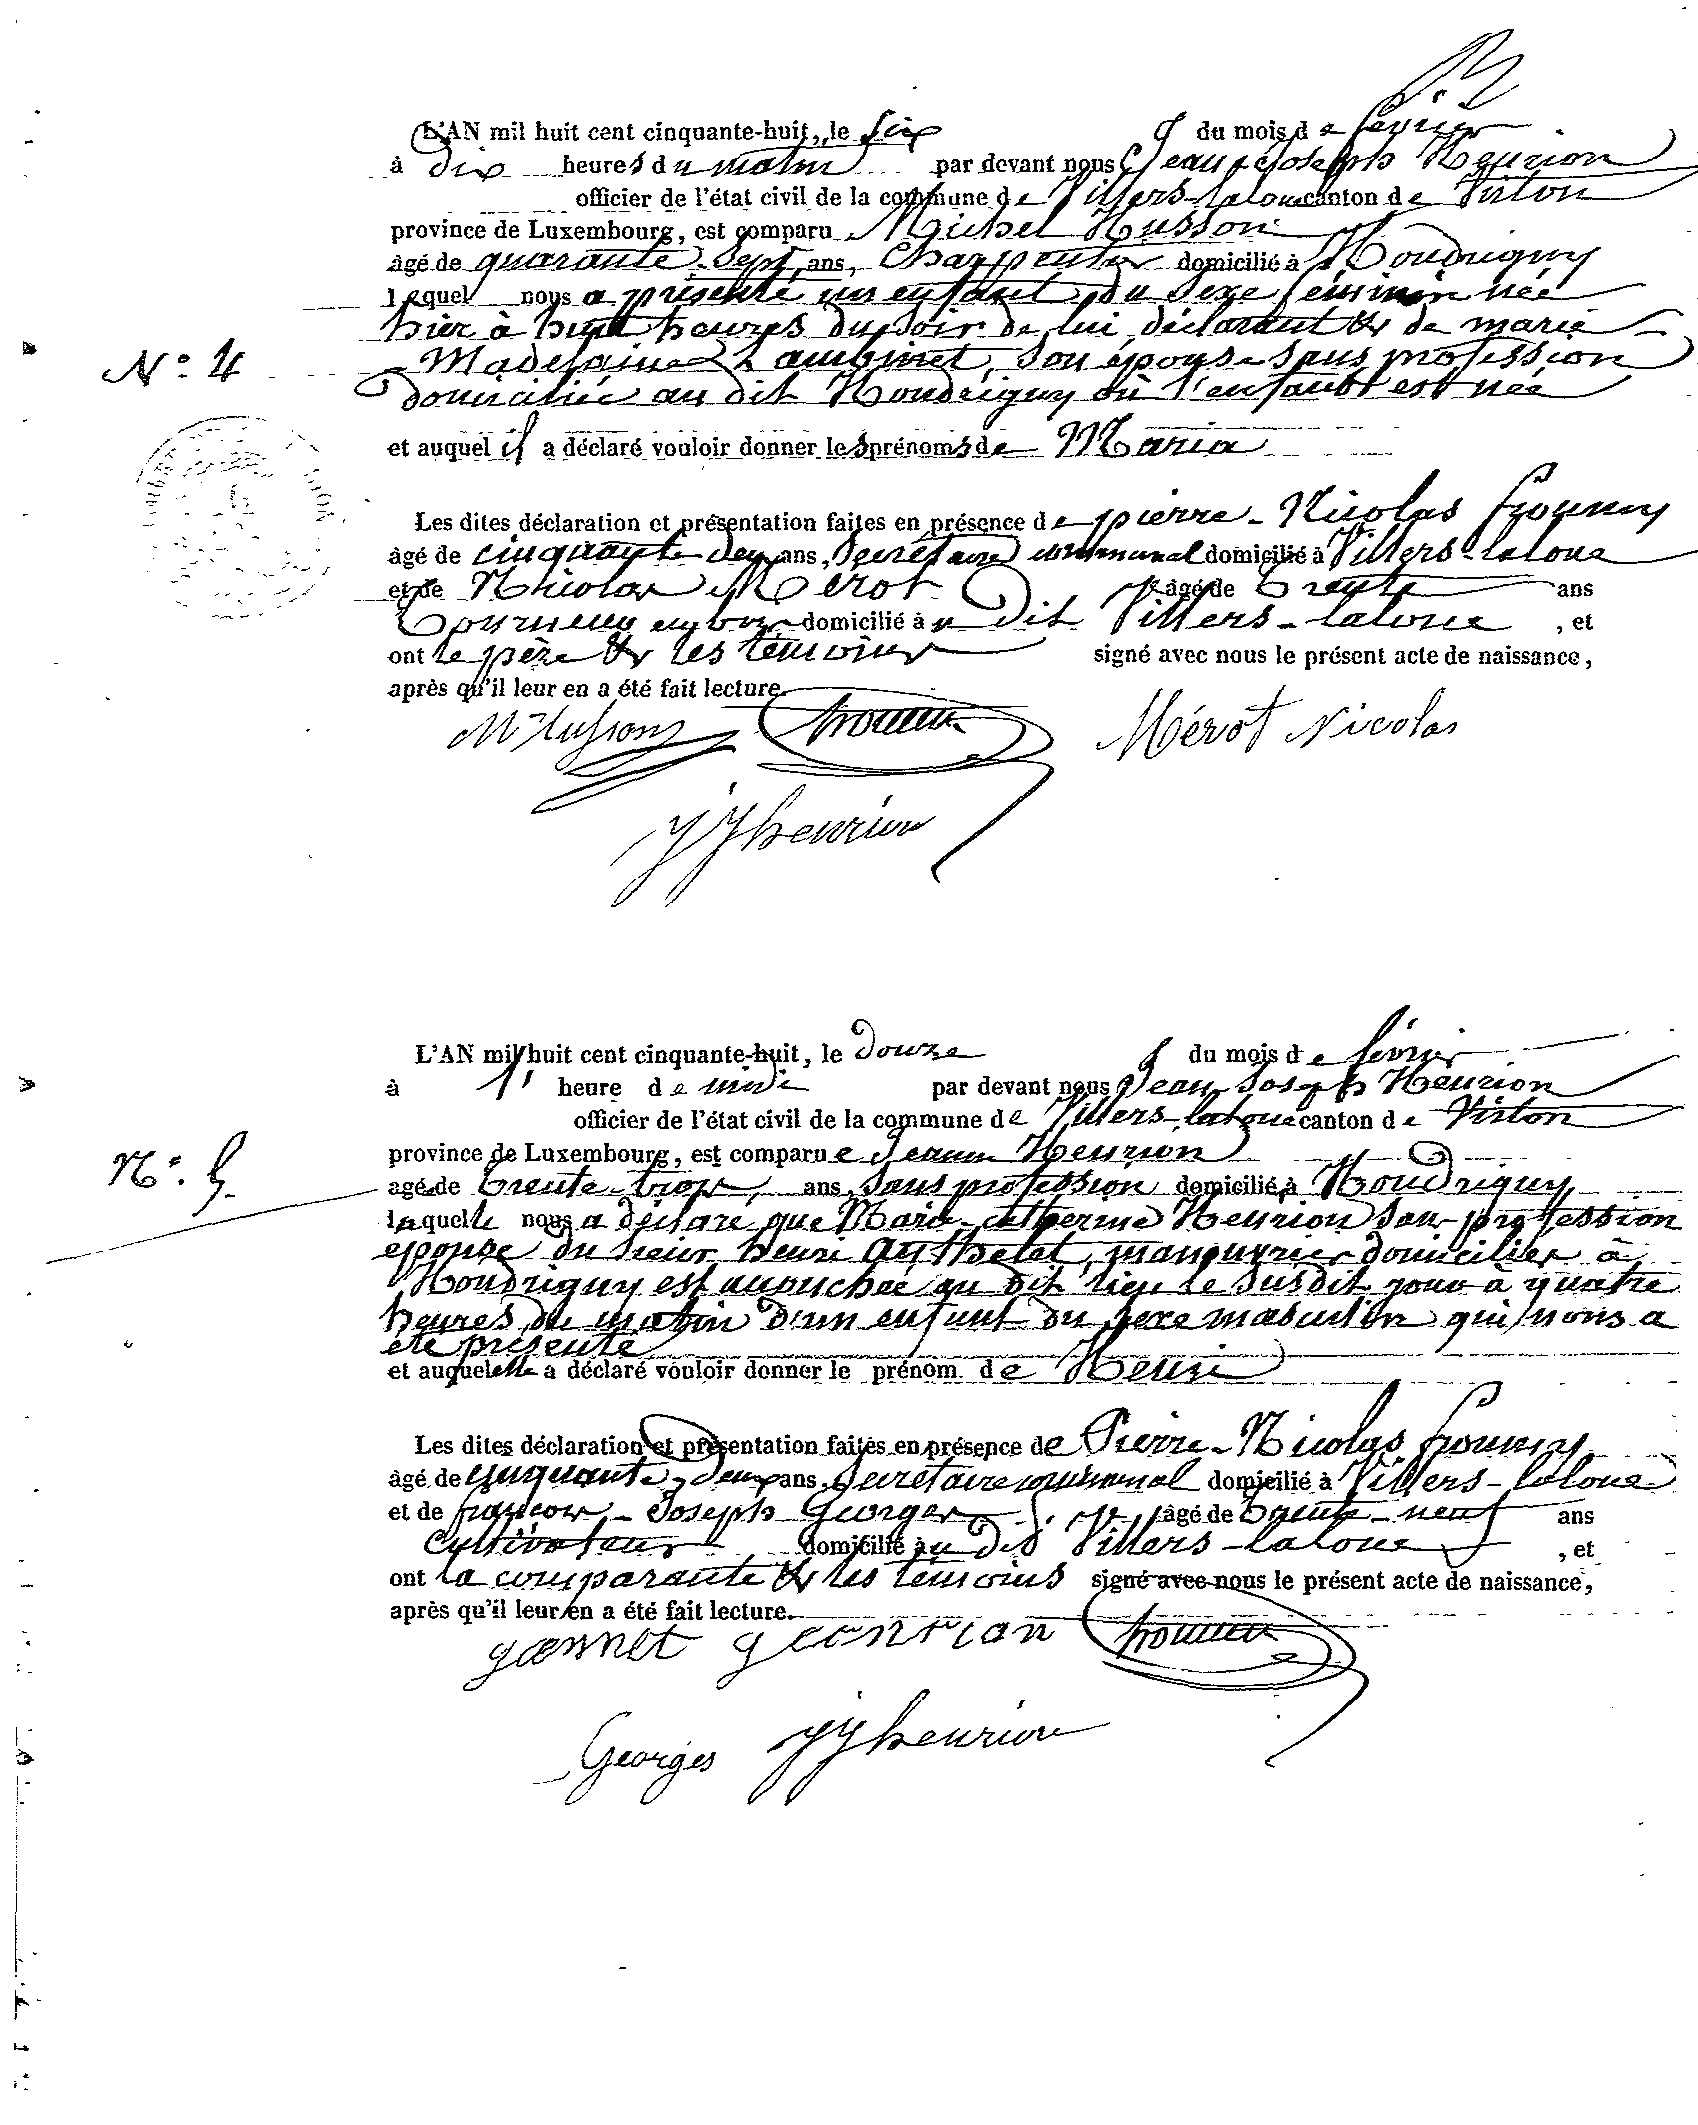 L'AN mil huit cent cinquante-huit, le six du mois de février
à dix heures du matin par devant nous Jean-Joseph Henrion
officier de l'état civil de la commune de Villers-laloue canton de Virton
province de Luxembourg, est comparu Michel Husson
âgé de quarante-sept ans, Charpentier domicilié à Houdrigny
lequel nous a présenté un enfant du sexe féminin née
hier à huit heures du soir de lui déclarant & de marie
N° 4
Madelaine Laubinet, son épouse sans profession
domiciliée au dit Houdrigny où l'enfant est née
et auquel il a déclaré vouloir donner les prénoms de Maria
Les dites déclaration et présentation faites en présence de pierre-Nicolas
âgé de cinquante deux ans, secrétaire communal domicilié à Villers-laloue
et de Nicolas Mérot âgé de trente ans
Tourneur en bois domicilié au dit Villers-laloue, et
ont le père & les témoins signé avec nous le présent acte de naissance,
après qu'il leur en a été fait lecture.
M Husson Mérot Nicolas
JJhenrion
L'AN mil huit cent cinquante-huit, le douze du mois de février
à 1 heure de midi par devant nous Jean-Joseph Henrion
officier de l'état civil de la commune de Villers-laloue canton de Virton
N° 5.
province de Luxembourg, est comparue Jeanne Henrion
agé de trente-trois, ans, sans profession domicilié à Houdrigny
laquelle nous a déclaré que Marie-catherine Henrion sans profession
épouse du sieur henri Anthelet, manouvrier domicilier à
Houdrigny est accouchée au dit lieu le susdit jour à quatre
heures du matin d'un enfant du sexe masculin qui nous a
été présenté
et auquel elle a déclaré vouloir donner le prénom de Henri
Les dites déclaration et présentation faites en présence de Pierre-Nicolas
âgé de cinquante-deux ans, secrétaire communal domicilié à Villers-laloue
et de françois-Joseph Georges âgé de trente-neuf ans
Cultivateur domicilié au dit Villers-laloue, et
ont la comparante & les témoins signé avec nous le présent acte de naissance,
après qu'il leur en a été fait lecture.
Georges JJhenrion